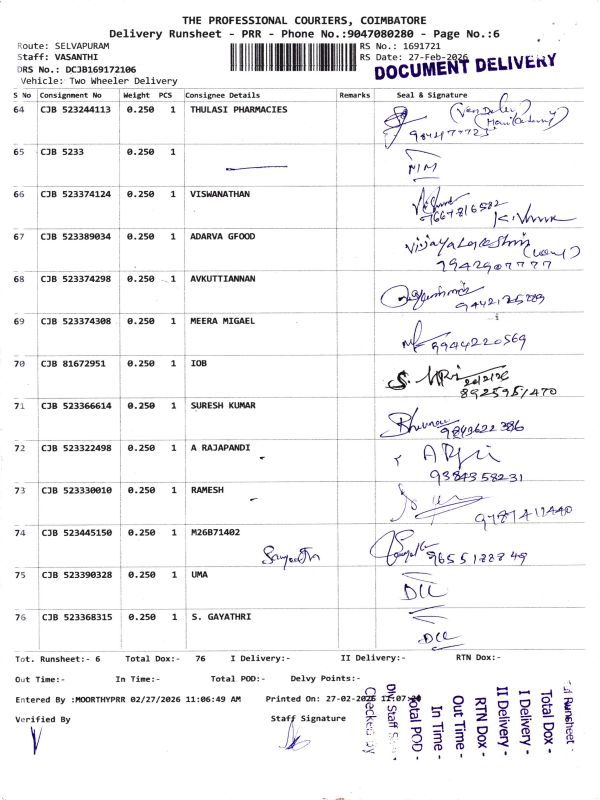 THE PROFESSIONAL COURIERS, COIMBATORE
Delivery Runsheet - PRR - Phone No.:9047080280 - Page No.:6
Route: SELVAPURAM
RS No.: 1691721
Staff: VASANTHI
RS Date: 27-Feb-2026
DRS No.: DCJB169172106
DOCUMENT DELIVERY
Vehicle: Two Wheeler Delivery
S No Consignment No Weight PCS Consignee Details Remarks Seal & Signature
64 CJB 523244113 0.250 1 THULASI PHARMACIES
65 CJB 5233 0.250 1 NIM
66 CJB 523374124 0.250 1 VISWANATHAN
7667816582
67 CJB 523389034 0.250 1 ADARVA GFOOD Vijayalakshmi
7942907777
68 CJB 523374298 0.250 1 AVKUTTIANNAN
69 CJB 523374308 0.250 1 MEERA MIGAEL
9944220569
70 CJB 81672951 0.250 1 IOB
8925951470
71 CJB 523366614 0.250 1 SURESH KUMAR
9843622386
72 CJB 523322498 0.250 1 A RAJAPANDI
9384358231
73 CJB 523330010 0.250 1 RAMESH
9787411440
74 CJB 523445150 0.250 1 M26B71402
75 CJB 523390328 0.250 1 UMA
76 CJB 523368315 0.250 1 S. GAYATHRI
Tot. Runsheet:- 6 Total Dox:- 76 I Delivery:- II Delivery:- RTN Dox:-
Out Time:- In Time:- Total POD:- Delvy Points:-
Entered By :MOORTHYPRR 02/27/2026 11:06:49 AM Printed On: 27-02-2026
Verified By Staff Signature
Runsheet -
Total Dox -
I Delivery -
II Delivery -
RTN Dox -
Out Time -
In Time -
Total POD -
Staff
Checked by